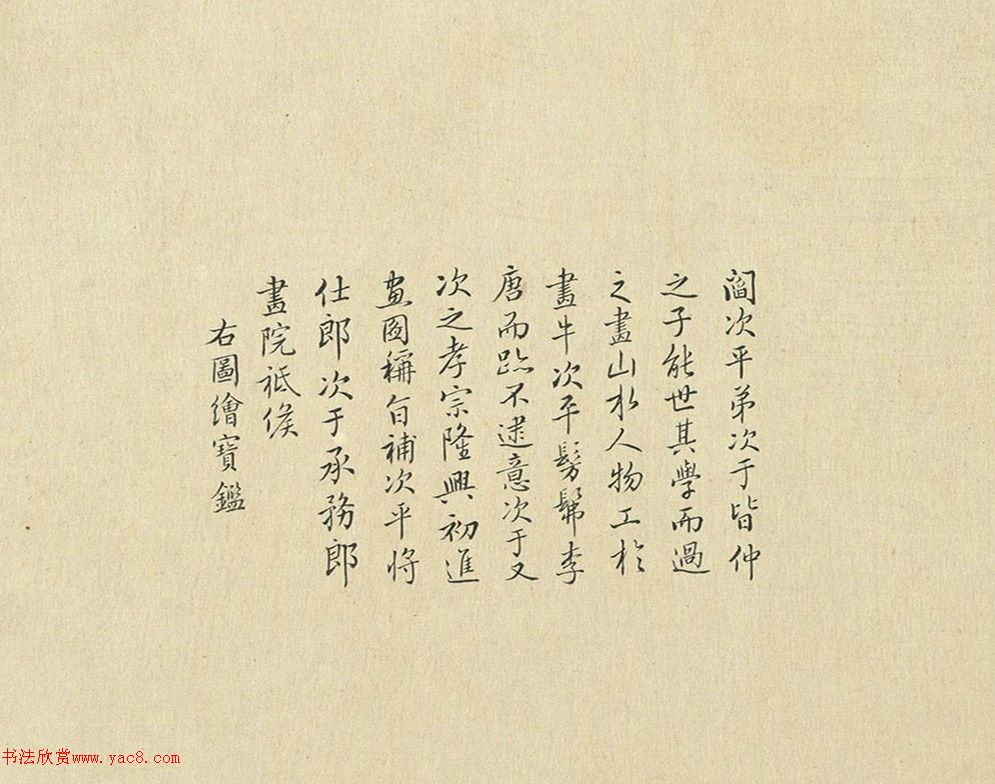 閻次平弟次于皆仲
之子能世其學而過
之畫山水人物工於
畫牛次平髣髴李
唐而跡不逮意次于又
次之孝宗隆興初進
畫圖稱旨補次平將
仕郎次于承務郎
畫院祗候
右圖繪寶鑑
书法欣赏www.yac8.com